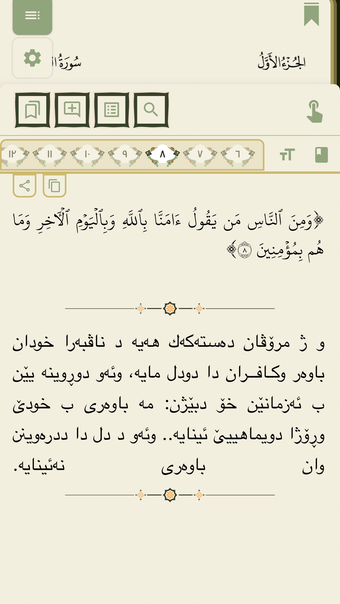 الجُزْءُ الأَوَّلُ
سُورَةُ
١٢ ١١ ١٠ ٩ ٨ ٧ ٦
﴿وَمِنَ ٱلنَّاسِ مَن يَقُولُ ءَامَنَّا بِٱللَّهِ وَبِٱلۡيَوۡمِ ٱلۡأٓخِرِ وَمَا
هُم بِمُؤۡمِنِينَ ٨﴾
و ژ مرۆڤان دەستەكەك هەیە د ناڤبەرا خودان
باوەر وكافران دا دودل مایە، وئەو دوڕوینە یێن
ب ئەزمانێن خۆ دبێژن: مە باوەری ب خودێ
وڕۆژا دویماهییێ ئینایە.. وئەو د دل دا ددرەوینن
وان باوەری نەئینایە.